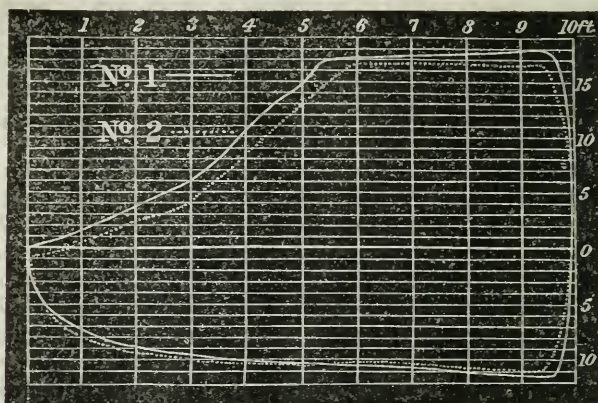 1 2 3 4 5 6 7 8 9 10ft.
Nº 1
15
Nº 2
10
5
0
5
10